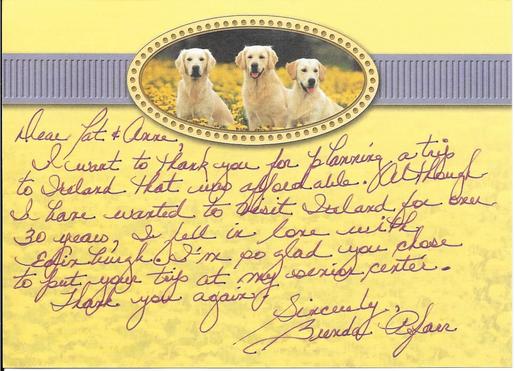 Dear Pat & Anne,
I want to thank you for planning a trip
to Ireland that was affordable. Although
I have wanted to visit Ireland for over
30 years, I fell in love with
Edinburgh. I'm so glad you chose
to put your trip at my senior center.
Thank you again,
Sincerely,
Brenda